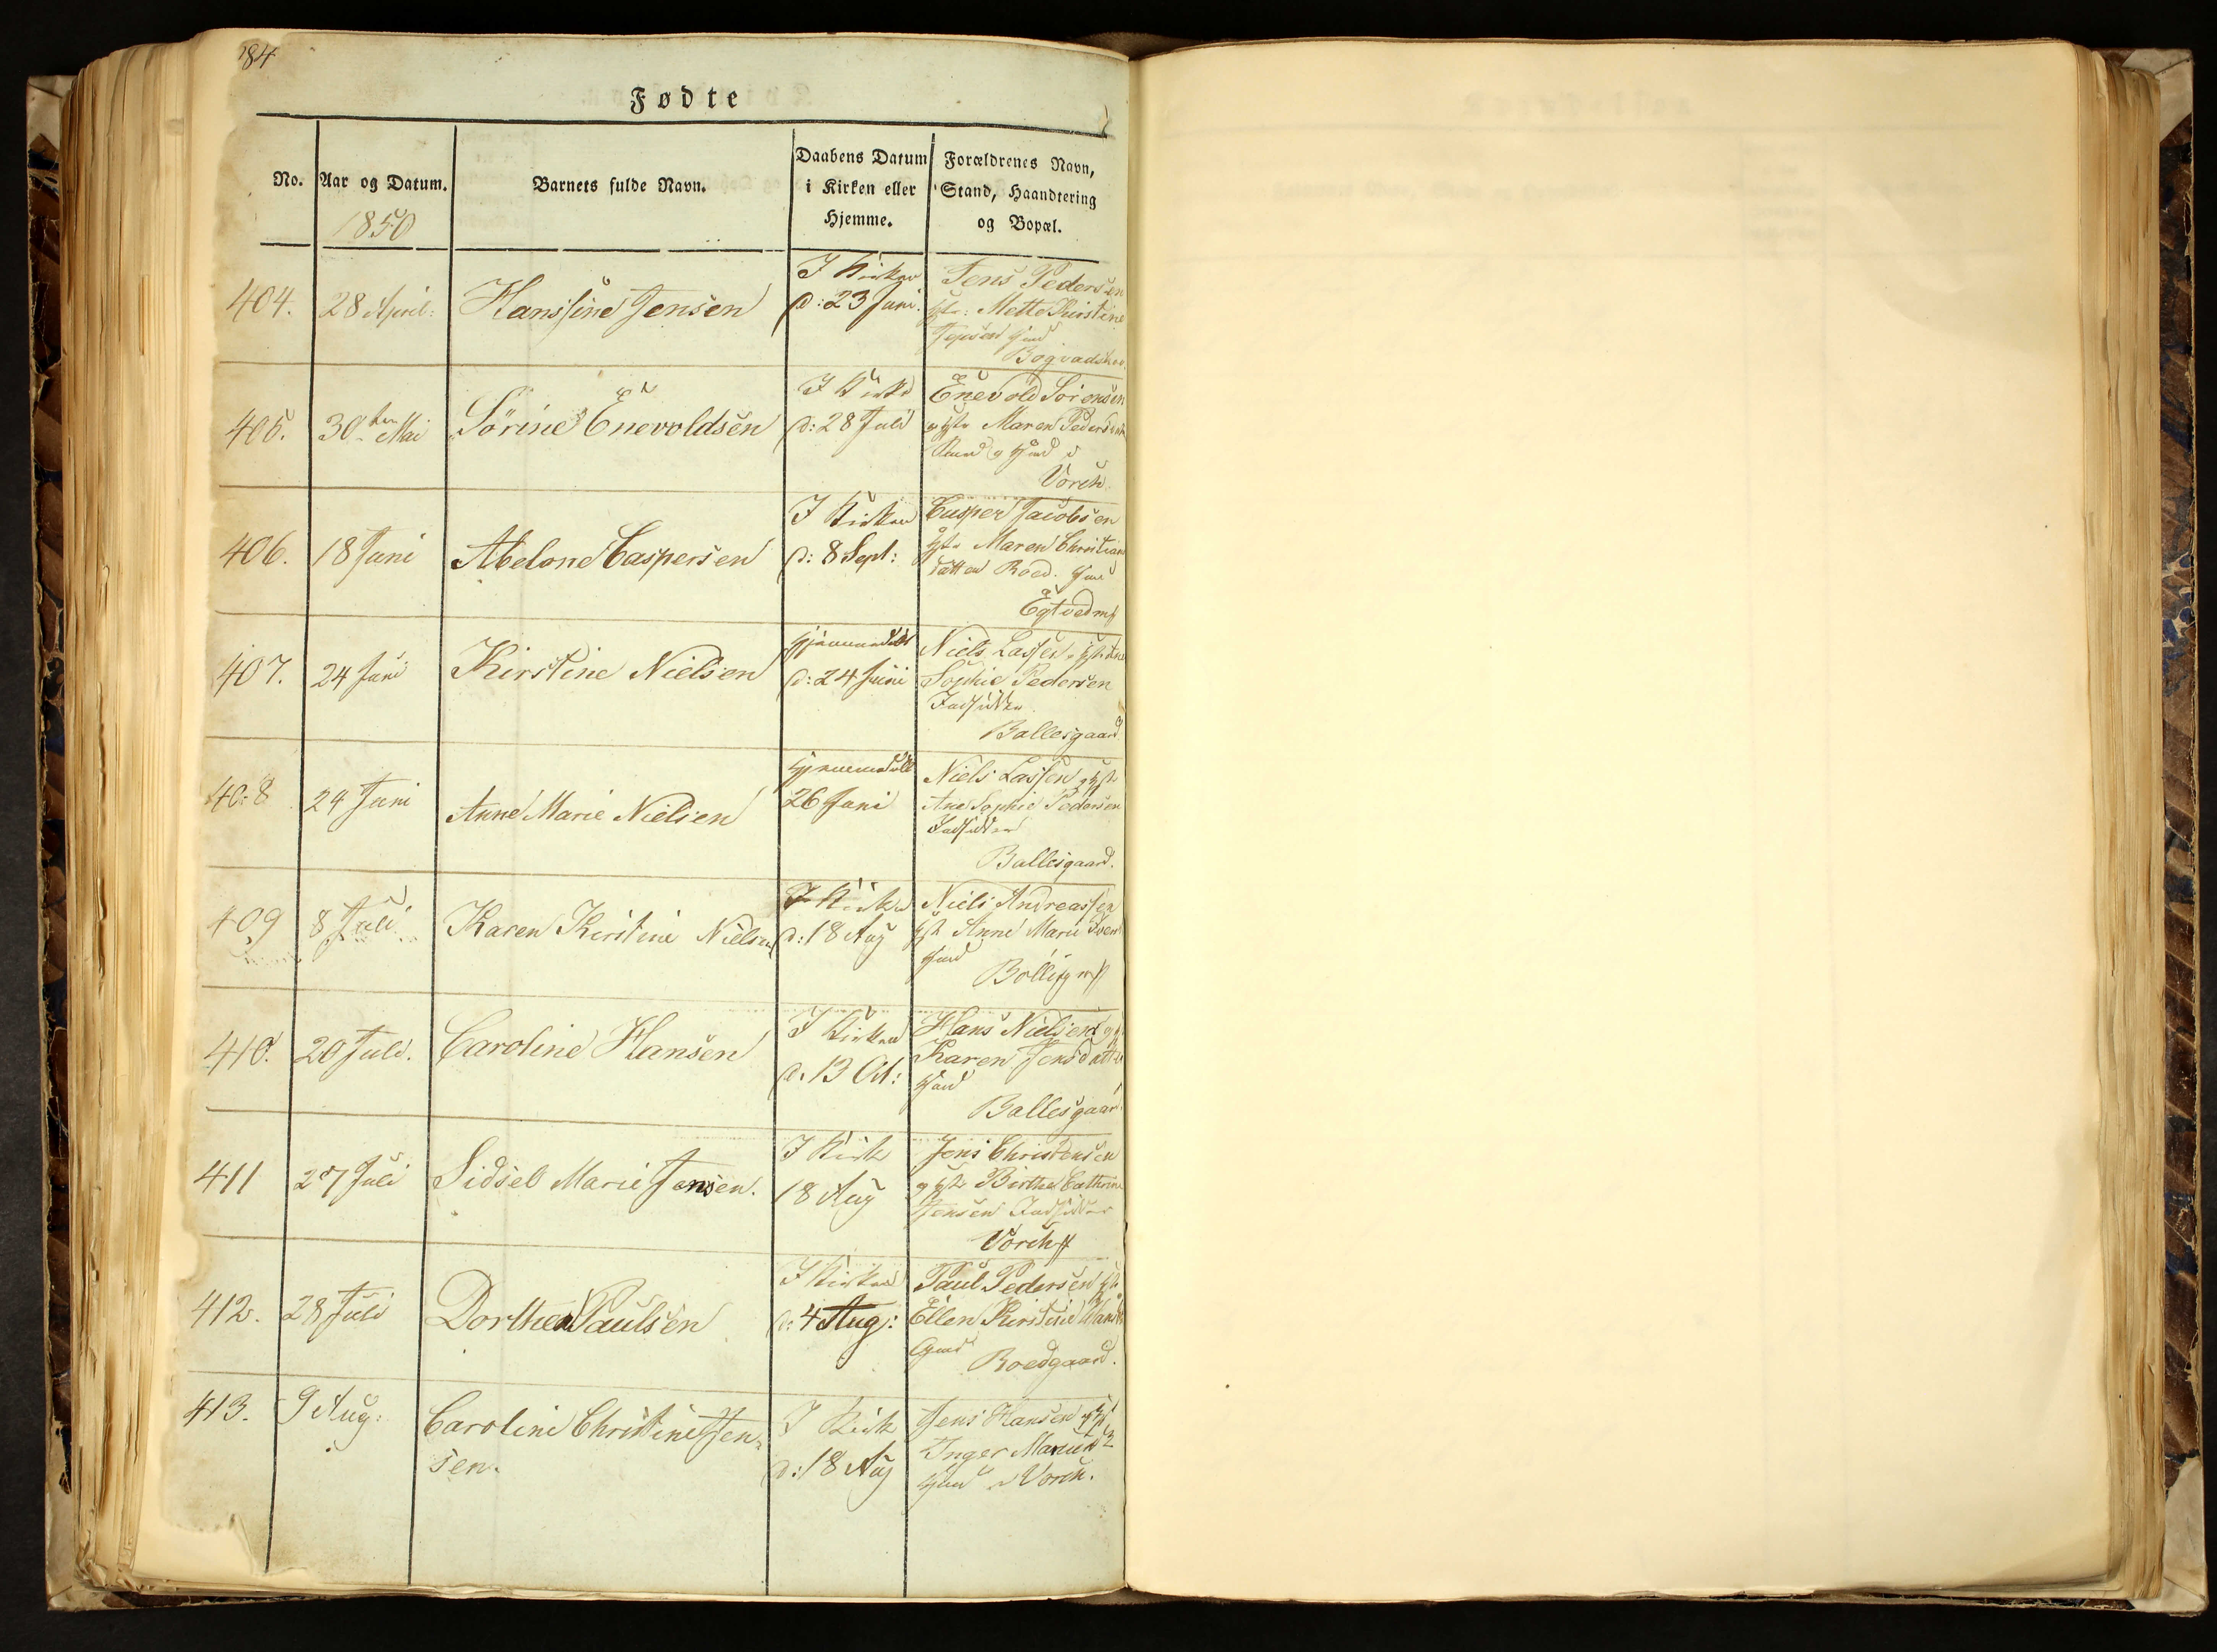 184
Fødte
No.
Aar og Datum.
1850
Barnets fulde Navn.
Daabens Datum
i Kirken eller
Hjemme.
Forældrenes Navn,
Stand, Haandtering
og Bopæl.
404.
28 April:
Hanssine Jensen
I Kirken
d: 23 Juni.
Jens Pedersen
Mette Kirstine
Jepsen
405.
30 Mai
Sörine Enevoldsen
I Kirke
d: 28 Juli
Enevold Sörensen
Maren Pedersen
Vorck
406.
18 Juni
Abelone Caspersen
I Kirken
d: 8 Sept:
Casper Jacobsen
Maren Christian
datter
Egtved
407.
24 Juni
Kirstine Nielsen
Hjemmedøbt
d: 24 Juni
Niels Lassen
Sophie Pedersen
Indsidder
Ballesgaard
408
24 Juni
Anne Marie Nielsen
Hjemmedøbt
26 Juni
Niels Lassen
Ane Sophie Pedersen
Indsidder
Ballesgaard.
409
8 Juli
Karen Kirstine Nielsen
I Kirke
d: 18 Aug
Niels Andreassen
Anne Marie
410.
20 Juli.
Caroline Hansen
I Kirken
d. 13 Oct:
Hans Nielsen
Karen Jensdatter
Ballesgaard
411
27 Juli
Sidsel Marie Jensen.
I Kirk
18 Aug
Jens Christensen
Birthe Cathrine
Jensen Indsidder
Vorck
412.
28 Juli
Dorthea Paulsen
I Kirken
d: 4 Aug:
Paul Pedersen
Ellen Kirstine
Roedgaard.
413.
9 Aug:
Caroline Christine Jen-
sen.
I Kirk
d: 18 Aug
Jens Hansen
Inger
Vorck.